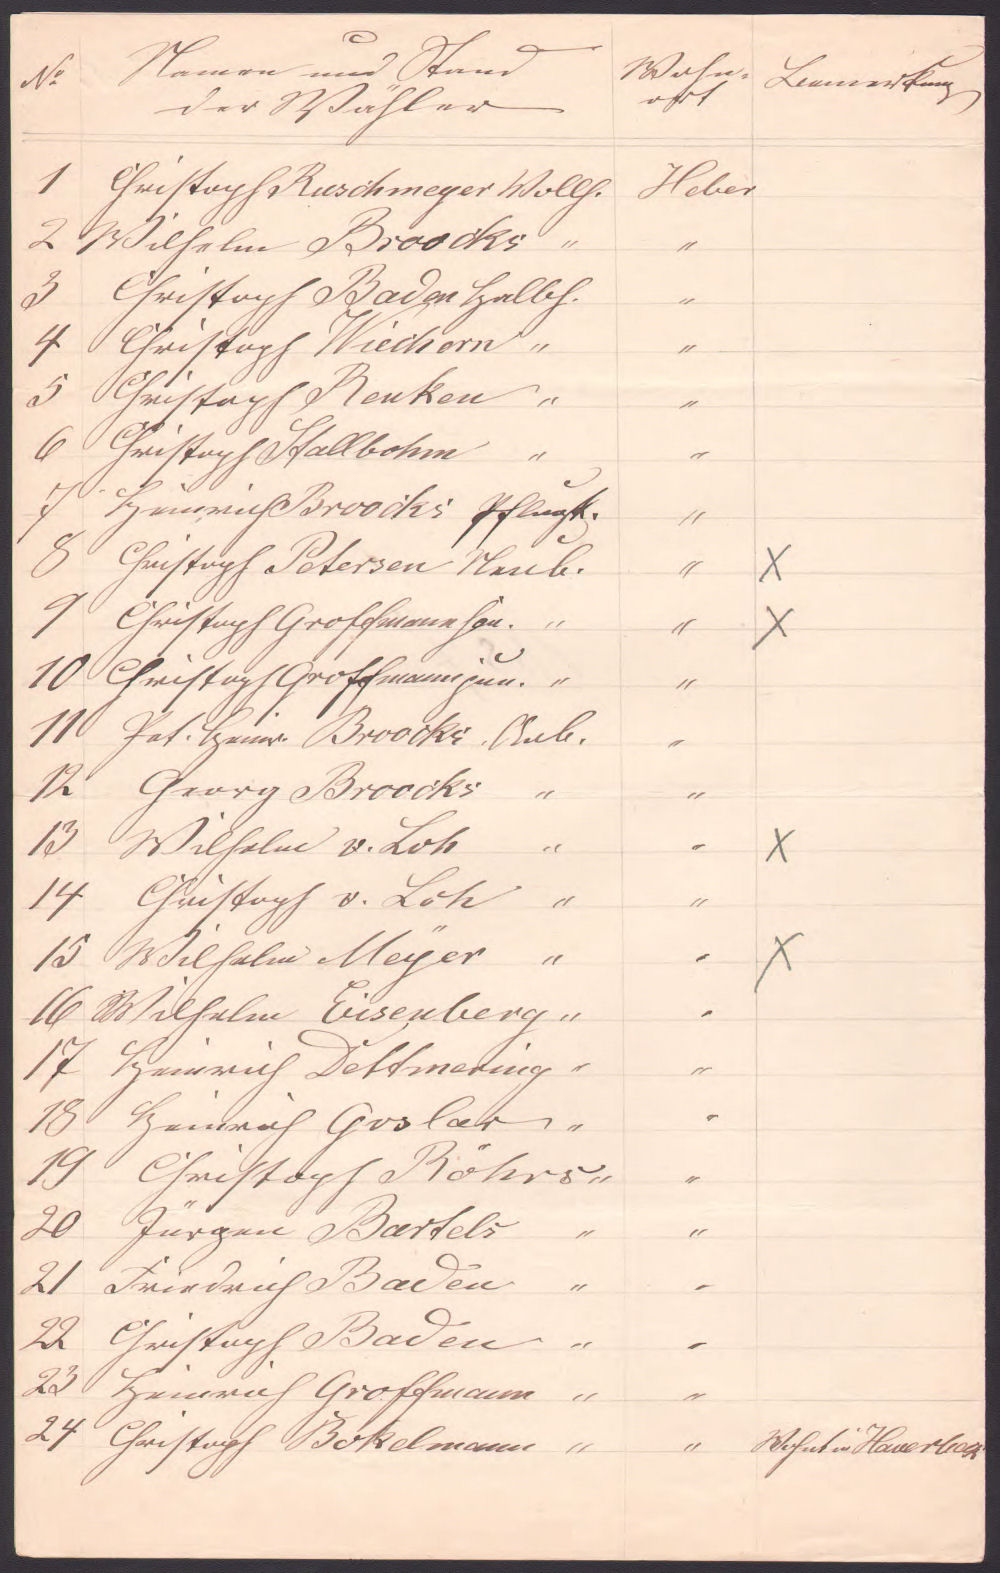 No Namen und Stand Wohn- Bemerkung
der Wähler ort
1 Christoph Ruschmeyer Vollh. Heber
2 Wilhelm Broocks " "
3 Christoph Baden Halbh. "
4 Christoph Wiechern " "
5 Christoph Renken " "
6 Christoph Stallbohm " "
7 Heinrich Broocks Pflugk. "
8 Christoph Petersen Neub. " X
9 Christoph Groffmann sen. " " X
10 Christoph Groffmann jun. " "
11 Pet. Heinr. Broocks Anb. "
12 Georg Broocks " "
13 Wilhelm v. Loh " " X
14 Christoph v. Loh " "
15 Wilhelm Meÿer " " X
16 Wilhelm Eisenberg " "
17 Heinrich Dettmering " "
18 Heinrich Goslar " "
19 Christoph Röhrs " "
20 Jürgen Bartels " "
21 Friedrich Baden " "
22 Christoph Baden " "
23 Heinrich Groffmann " "
24 Christoph Bokelmann " " Wohnt in Haverbeck